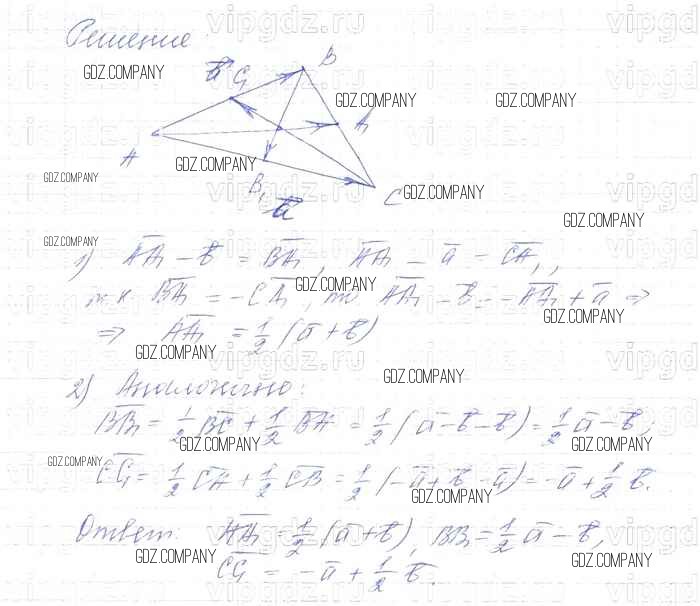 Решение
B
b̅ C₁
A₁
A
B₁
a̅
C
1) A̅A̅₁ - b̅ = B̅A̅₁, A̅A̅₁ - a̅ = C̅A̅₁,
т.к. B̅A̅₁ = -C̅A̅₁, то A̅A̅₁ - b̅ = -A̅A̅₁ + a̅ ⇒
⇒ A̅A̅₁ = 1/2 (a̅ + b̅)
2) Аналогично:
B̅B̅₁ = 1/2 B̅C̅ + 1/2 B̅A̅ = 1/2 (a̅ - b̅ - b̅) = 1/2 a̅ - b̅,
C̅C̅₁ = 1/2 C̅A̅ + 1/2 C̅B̅ = 1/2 (-a̅ + b̅ - a̅) = -a̅ + 1/2 b̅.
Ответ: A̅A̅₁ = 1/2 (a̅ + b̅), BB₁ = 1/2 a̅ - b̅,
C̅C̅₁ = -a̅ + 1/2 b̅.
GDZ.COMPANY
vipgdz.ru